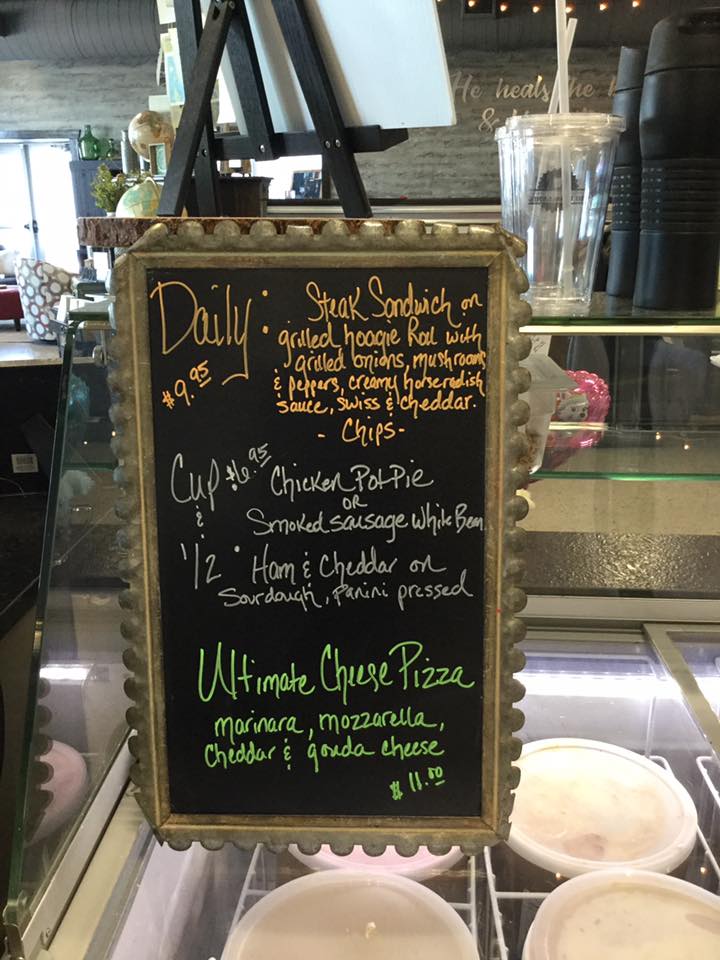 He heals the
&
Daily:
$9.95
Steak Sandwich on
grilled hoagie Roll with
grilled onions, mushrooms
& peppers, creamy horseradish
sauce, swiss & cheddar.
- Chips -
Cup $6.95
&
1/2
Chicken Pot Pie
OR
Smoked sausage White Bean
Ham & Cheddar on
Sourdough, panini pressed
Ultimate Cheese Pizza
marinara, mozzarella,
Cheddar & gouda cheese
$11.00